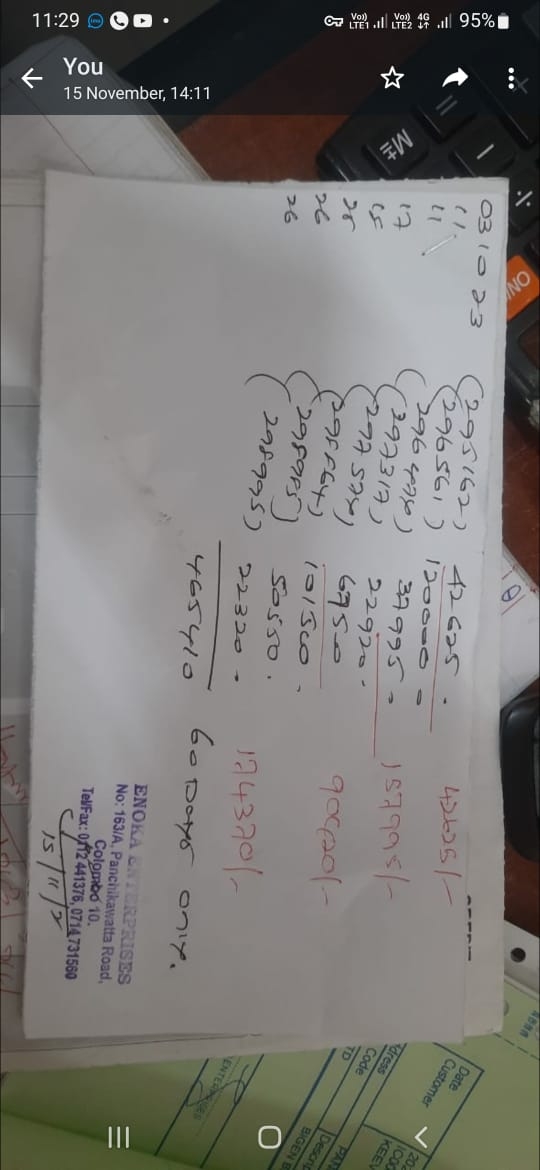 11:29
Vo)) LTE1 Vo)) LTE2 4G 95%
You
15 November, 14:11
03 10 23 (295162) 42625. 42625/-
11 (296561) 120000 =
11 (296478) 37995 = 157995/-
17 (297317) 22920.
67500 90420/-
25 101500.
26 (298985) 50550.
26 (298995) 22320. 174370/-
465410 60 Days only.
ENOKA ENTERPRISES
No: 163/A, Panchikawatta Road,
Colombo 10.
Tel/Fax: 0112 441376, 0714 731560
15/11/
M±
ON
Date
Customer
Address
Code